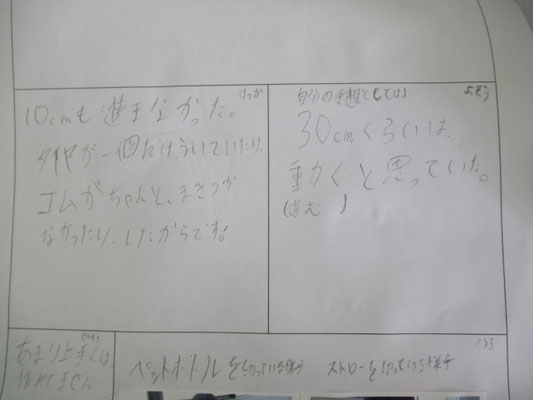 けっか
10cmも進まなかった。
タイヤが、一個だけ、ういていたり、
ゴムがちゃんと、まきつか
なかったり、したからです。
よそう
自分の予想としては、
30cmくらいは、
動くと思っていた。
(進む)
あまり上手くは
作れてません
ペットボトルを切っている様子
ストローを切っている様子